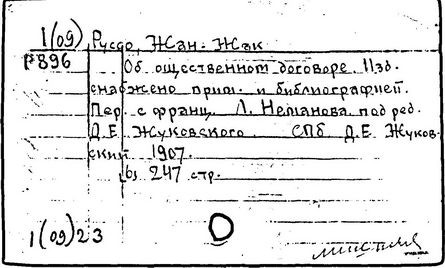 1(09) Руссо, Жан-Жак
Р896 Об общественном договоре. Изд.
снабжено прим. и библиографией.
Пер. с франц. Л. Неманова под ред.
Д.Е. Жуковского. СПб. Д.Е. Жуков-
ский 1907.
247 стр.
1(09)23